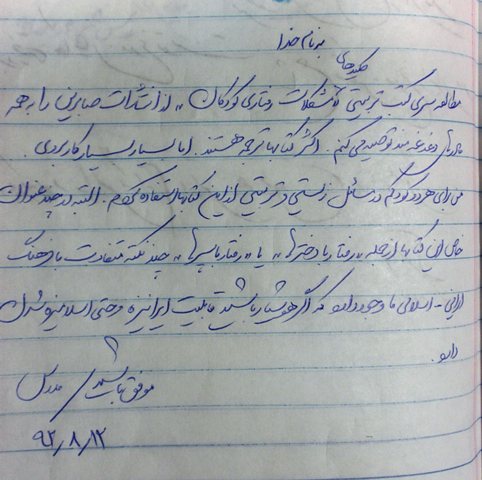 بنام خدا
کلیدهای
مطالعه سری کتب تربیتی "مشکلات رفتاری کودکان" از انتشارات صابرین را به همه
مادرهای دغدغه مند توصیه می کنم. اکثر کتابها ترجمه هستند. اما بسیار بسیار کاربردی.
من برای هر دو کودکم در مسائل زیستی و تربیتی از این کتابها استفاده کردم. البته در چند عنوان
خاص این کتابها از جمله "رفتار با دخترها" یا "رفتار با پسرها" چند نکته متفاوت با فرهنگ
ایرانی - اسلامی ما وجود دارد که اگر هوشیار باشید قابلیت ایرانیزه و حتی اسلامیزه شدن
دارد.
موفق باشید
۹۲/۸/۱۲